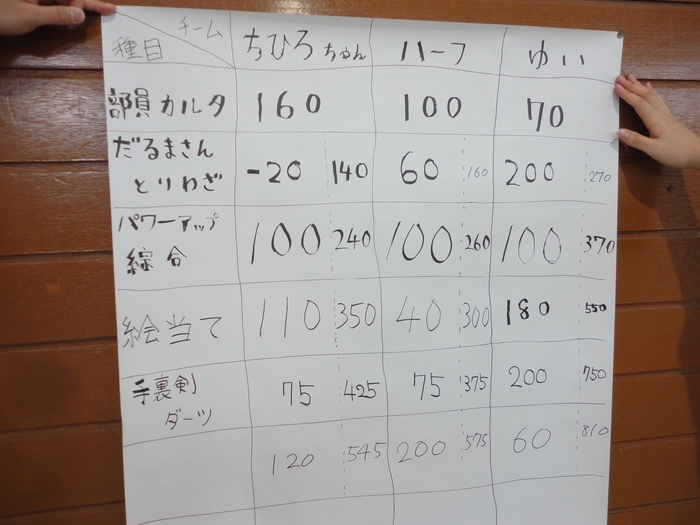 チーム
種目 ちひろちゅん ハーフ ゆい
部員カルタ 160 100 70
だるまさん
とりわぎ -20 140 60 160 200 270
パワーアップ
綜合 100 240 100 260 100 370
絵当て 110 350 40 300 180 550
手裏剣
ダーツ 75 425 75 375 200 750
120 545 200 575 60 810